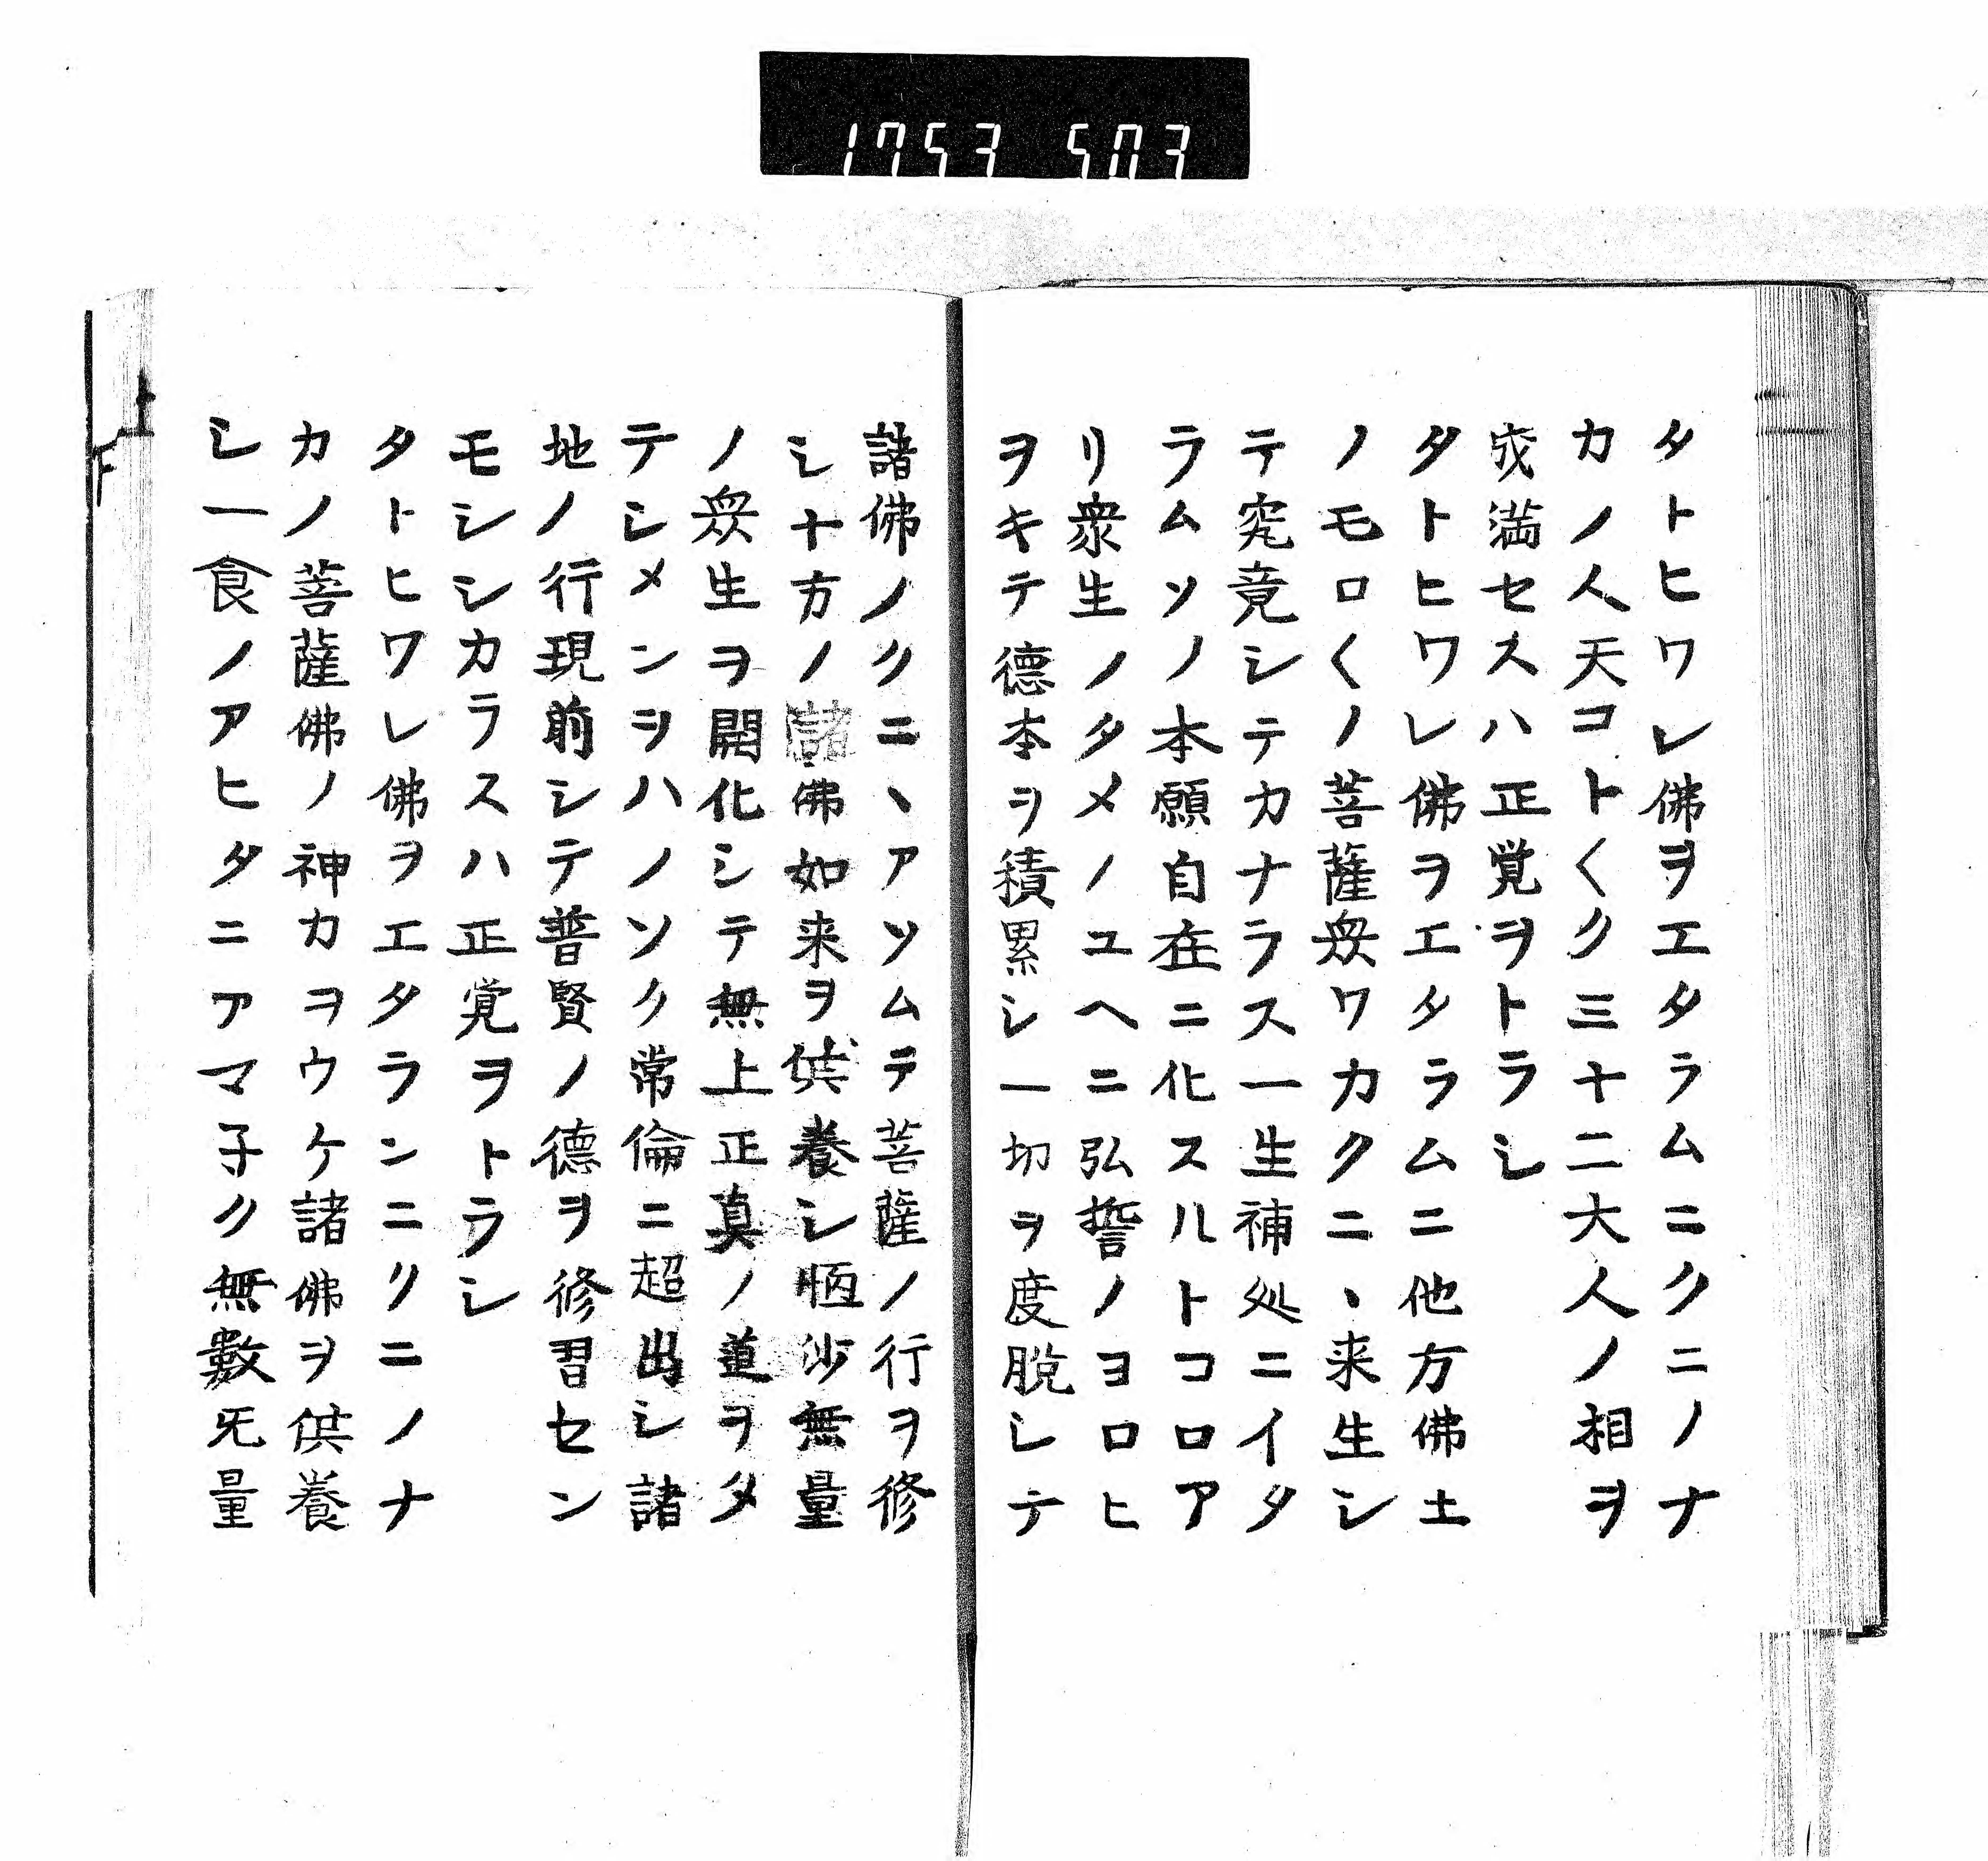 1753 503
タトヒワレ佛ヲエタラムニクニノナ
カノ人天コト〱ク三十二大人ノ相ヲ
成満セスハ正覚ヲトラシ
タトヒワレ佛ヲエタラムニ他方佛土
ノモロ〱ノ菩薩衆ワカクニヽ来生シ
テ究竟シテカナラス一生補処ニイタ
ラムソノ本願自在ニ化スルトコロア
リ衆生ノタメノユヘニ弘誓ノヨロヒ
ヲキテ德本ヲ積累シ一切ヲ度脱シテ
諸佛ノクニヽアソムテ菩薩ノ行ヲ修
シ十方ノ諸佛如来ヲ供養シ恒沙無量
ノ衆生ヲ開化シテ無上正真ノ道ヲタ
テシメンヲハノソク常倫ニ超出シ諸
地ノ行現前シテ普賢ノ德ヲ修習セン
モシシカラスハ正覚ヲトラシ
タトヒワレ佛ヲエタランニクニノナ
カノ菩薩佛ノ神力ヲウケ諸佛ヲ供養
シ一食ノアヒタニアマ子ク無數无量
上
下